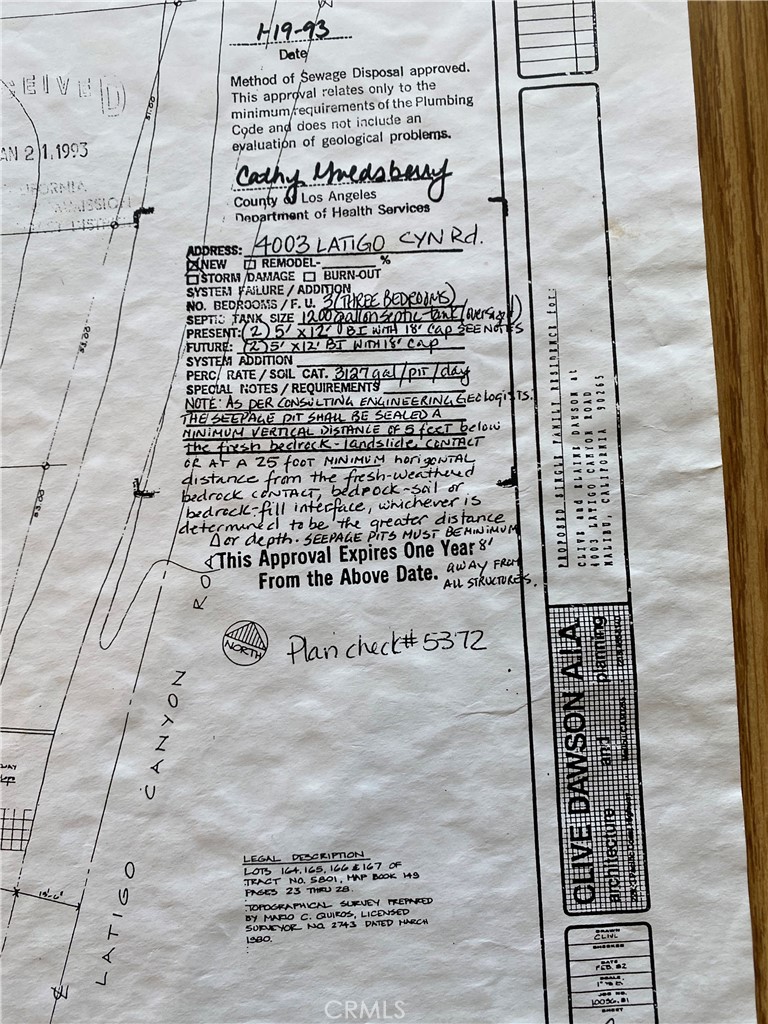 1-19-93
Date
Method of Sewage Disposal approved.
This approval relates only to the
minimum requirements of the Plumbing
Code and does not include an
evaluation of geological problems.
Cathy
County of Los Angeles
Department of Health Services
CEIVED
AN 21.1993
ADDRESS: 4003 LATIGO CYN Rd.
NEW REMODEL- %
STORM DAMAGE BURN-OUT
SYSTEM FAILURE / ADDITION
NO. BEDROOMS / F. U. 3 (THREE BEDROOMS)
SEPTIC TANK SIZE 1200 gallon septic tank (oversize)
PRESENT: (2) 5' X 12' BI WITH 18' cap SEE NOTES
FUTURE: (2) 5' X 12' BI WITH 18' cap
SYSTEM ADDITION
PERC / RATE / SOIL CAT. 3127 gal/pit/day
SPECIAL NOTES / REQUIREMENTS
NOTE: AS PER CONSULTING ENGINEERING Geologists.
THE SEEPAGE PIT SHALL BE SEALED A
MINIMUM VERTICAL DISTANCE OF 5 feet below
the fresh bedrock-landslide, CONTACT
OR AT A 25 FOOT MINIMUM horizontal
distance from the fresh-weathered
bedrock CONTACT, bedrock-soil or
bedrock-fill interface, whichever is
determined to be the greater distance
or depth. SEEPAGE PITS MUST BE MINIMUM
8' AWAY FROM
ALL STRUCTURES.
This Approval Expires One Year
From the Above Date.
NORTH
Plan check# 5372
LATIGO CANYON RO
51.00
53.00
53.00
15'-6"
LEGAL DESCRIPTION
LOTS 164, 165, 166 & 167 OF
TRACT NO. 5801, MAP BOOK 149
PAGES 23 THRU 28.
TOPOGRAPHICAL SURVEY PREPARED
BY MARIO C. QUIROS, LICENSED
SURVEYOR NO. 2743 DATED MARCH
1980.
PROPOSED SINGLE FAMILY RESIDENCE for:
CLIVE and ELAINE DAWSON at
4003 LATIGO CANYON ROAD
MALIBU, CALIFORNIA 90265
CLIVE DAWSON AIA
architecture and planning
DRAWN
CLIVE
CHECKED
DATE
FEB. 82
SCALE
JOB NO.
10036.81
SHEET
CRMLS